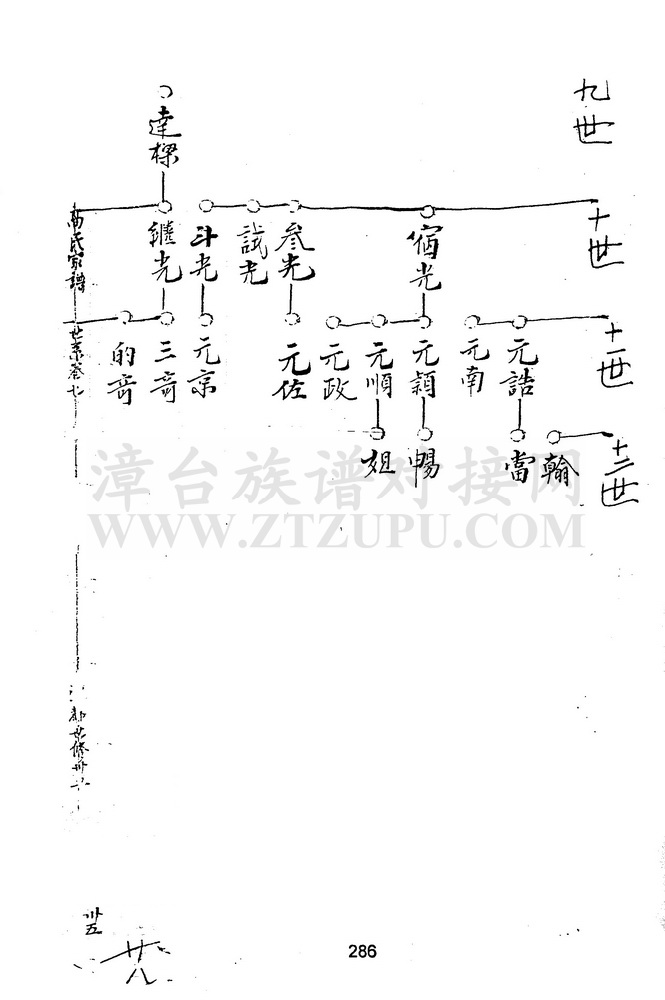 九世
達樑
十世
宿光
參光
試光
斗光
繼光
高氏家譜
十一世
元誥
元南
元穎
元順
元政
元佐
元京
三奇
的奇
世系卷七
十二世
翰
當
暢
姐
漳台族谱对接网
WWW.ZTZUPU.COM
卅五
廿八
286